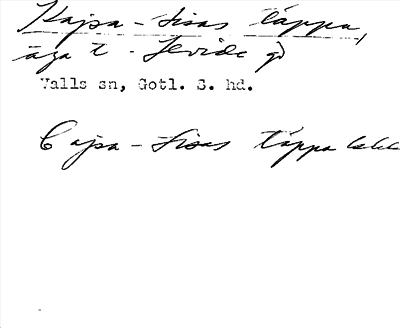 Kajsa-Lisas täppa,
äga t. Levide gd
Valls sn, Gotl. S. hd.
Cajsa-Lisas Täppa